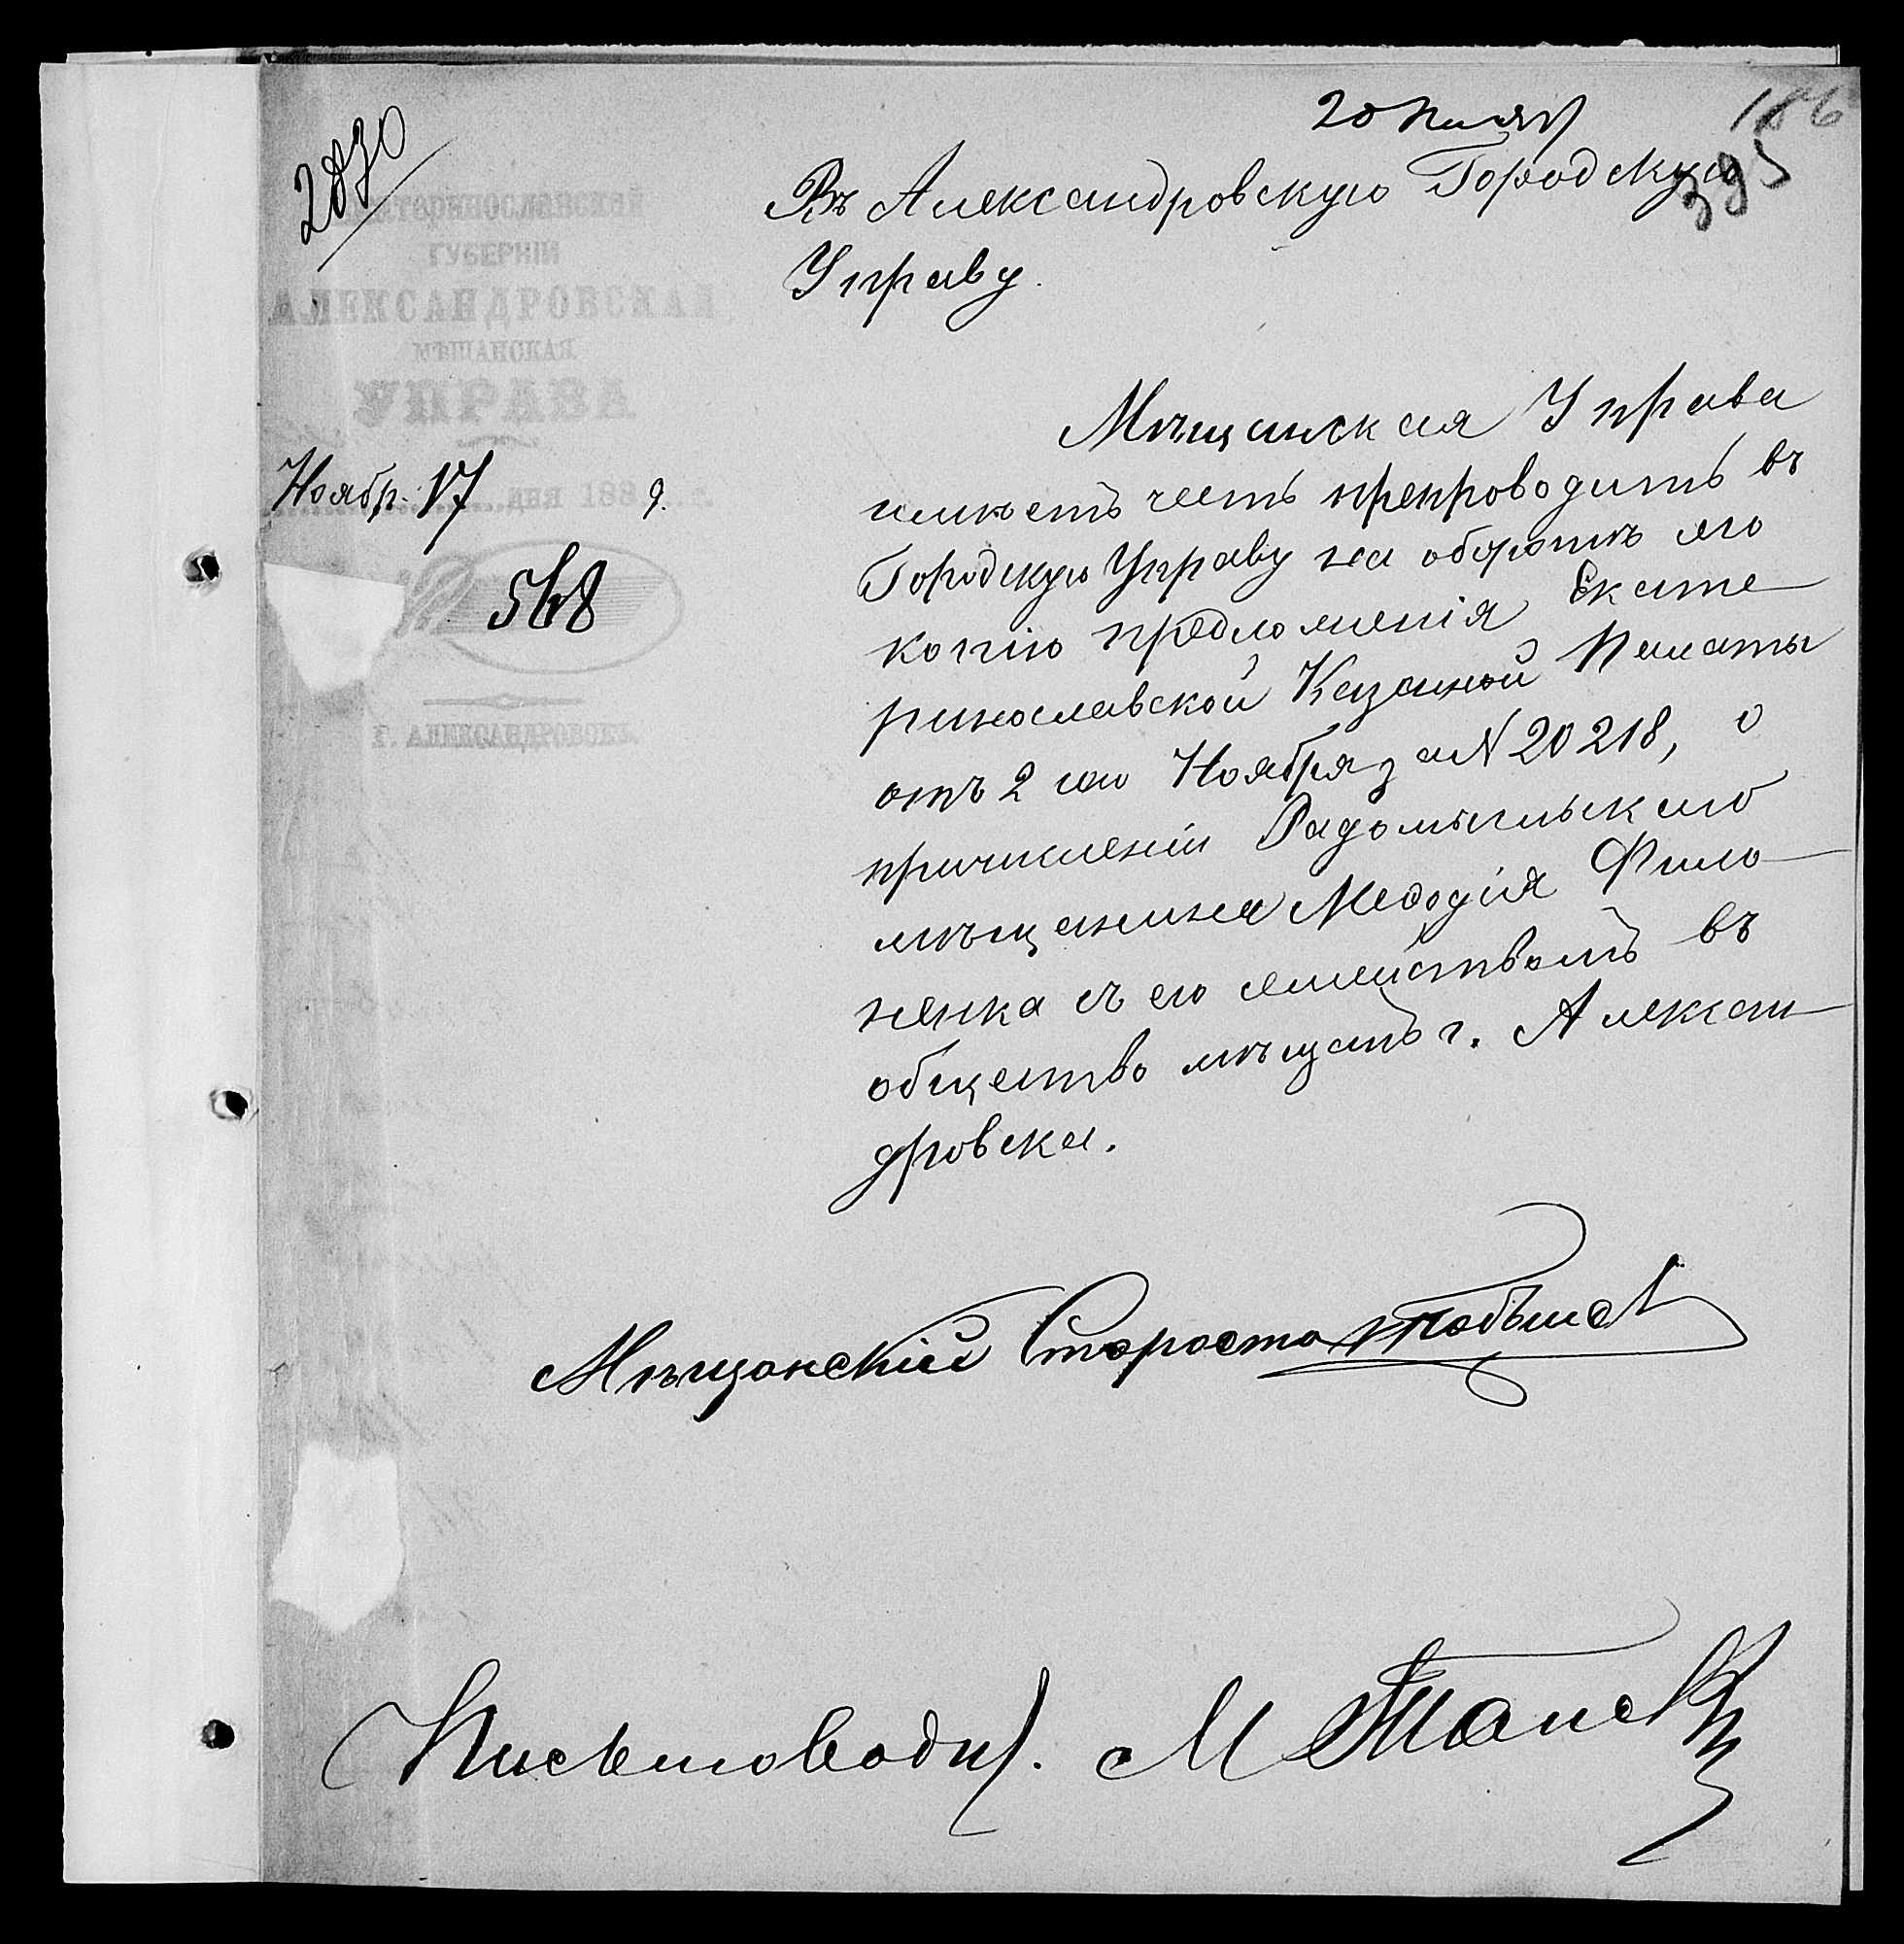 2830
20 Ноября
186
395
Екатеринославской
ГУБЕРНІИ
АЛЕКСАНДРОВСКАЯ
МѢЩАНСКАЯ
УПРАВА
Ноябр. 17 дня 1889 г.
568
Г. АЛЕКСАНДРОВСКЪ.
Въ Александровскую Городскую
Управу.
Мѣщанская Управа
имѣетъ честь препроводить въ
Городскую Управу на оборотѣ его
копію предложенія Екате-
ринославской Казеной Палаты
отъ 2 го Ноября за № 20218, о
причисленіи Радомысльскаго
мѣщанина Меѳодія Фило-
ненка съ его семействомъ въ
общество мѣщанъ г. Алексан-
дровска.
Мѣщанскій Староста
Письмоводит. М